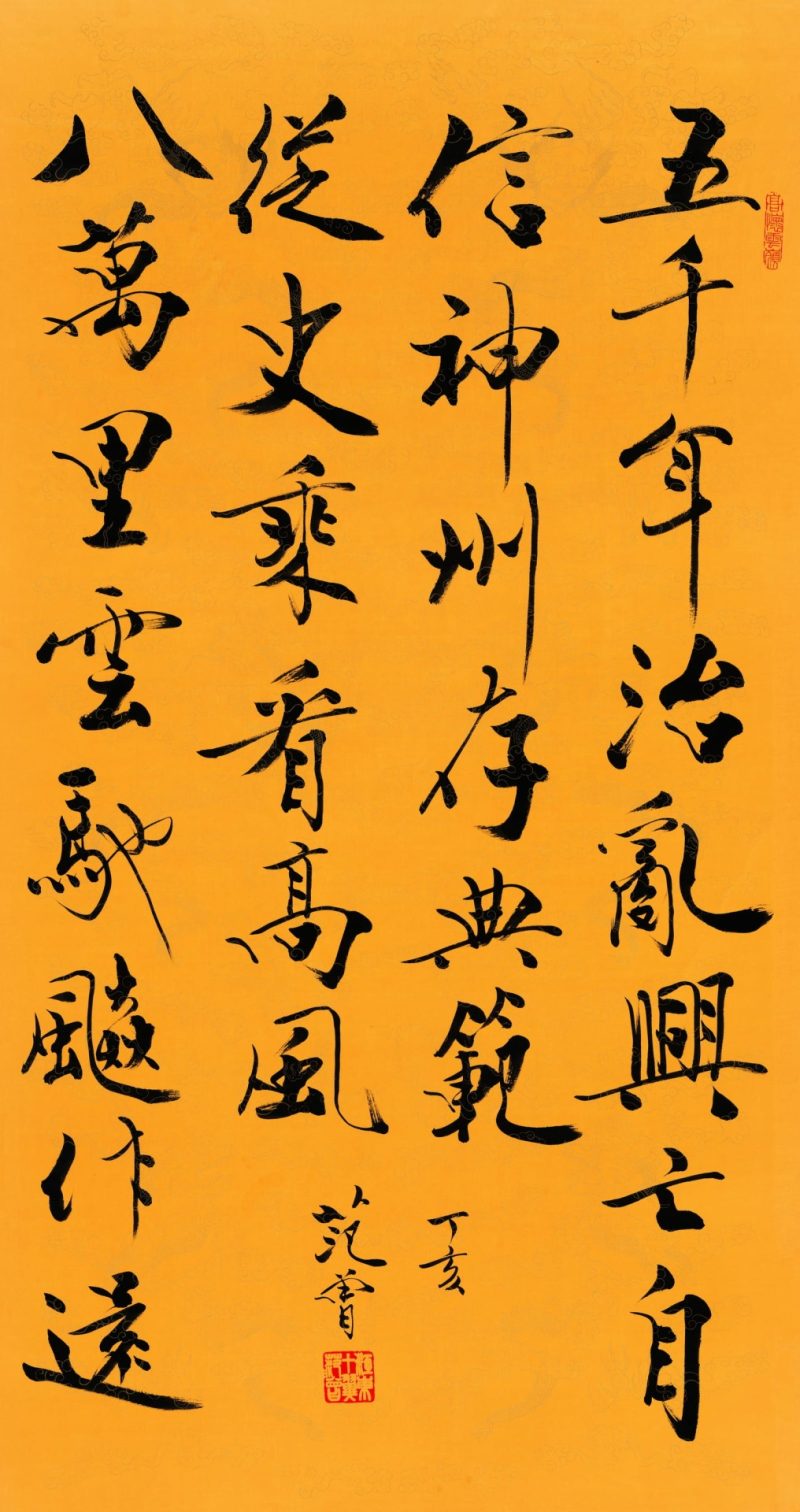 五千年治亂興亡自
信神州存典範
丁亥
八萬里雲馳飇作遠
從史乘看高風
范曾